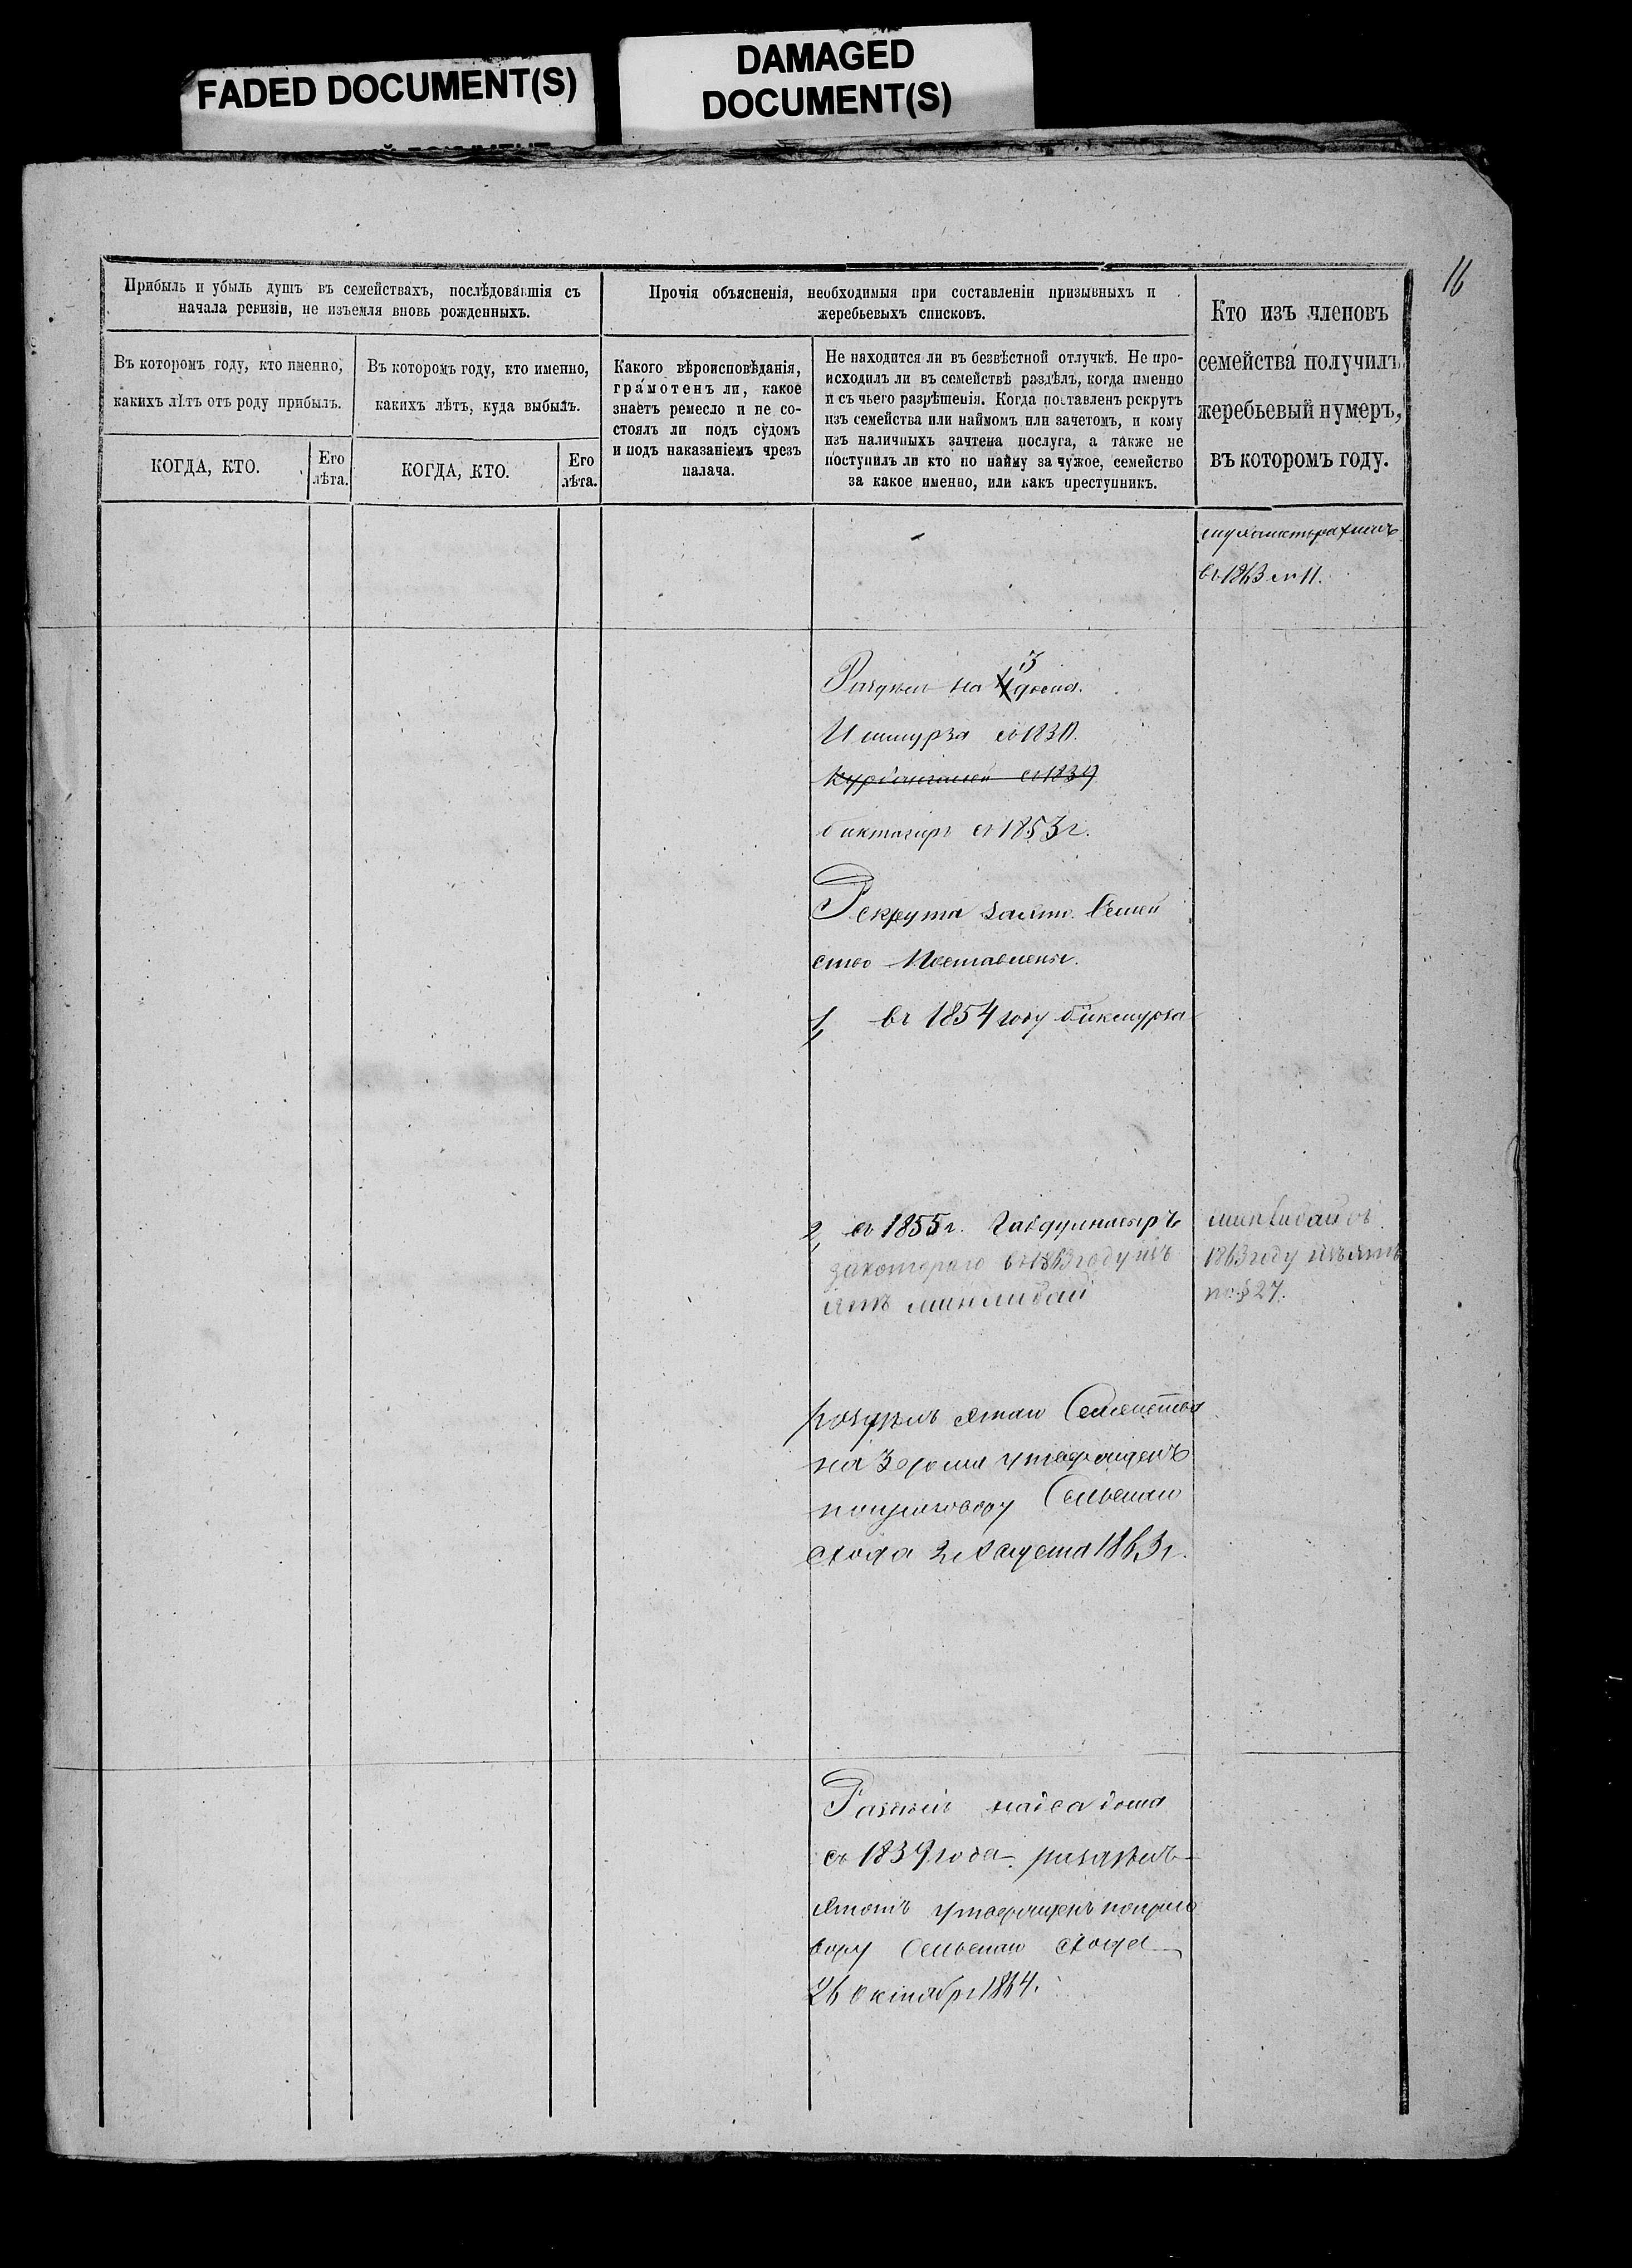 FADED DOCUMENT(S)
DAMAGED
DOCUMENT(S)
16
Прибыль и убыль душъ въ семействахъ, послѣдовавшія съ
начала ревизіи, не изъемля вновь рожденныхъ.
Прочія объясненія, необходимыя при составленіи призывныхъ и
жеребьевыхъ списковъ.
Кто изъ членовъ
семейства получилъ
жеребьевый нумеръ,
въ которомъ году.
Въ которомъ году, кто именно,
какихъ лѣтъ отъ роду прибылъ.
Въ которомъ году, кто именно,
какихъ лѣтъ, куда выбылъ.
Какого вѣроисповѣданія,
грамотенъ ли, какое
знаетъ ремесло и не со-
стоялъ ли подъ судомъ
и подъ наказаніемъ чрезъ
палача.
Не находится ли въ безвѣстной отлучкѣ. Не про-
исходилъ ли въ семействѣ раздѣлъ, когда именно
и съ чьего разрѣшенія. Когда поставленъ рекрутъ
изъ семейства или наймомъ или зачетомъ, и кому
изъ наличныхъ зачтена послуга, а также не
поступилъ ли кто по найму за чужое, семейство
за какое именно, или какъ преступникъ.
КОГДА, КТО.
Его
лѣта.
КОГДА, КТО.
Его
лѣта.
въ 1863 № 11.
3
Раздѣлъ на 4 дома.
Ишмурза съ 1830.
съ 1839
съ 1853 г.
Рекрута Семей
ство Поставлены.
1, въ 1854 году Бикмурза
2, въ 1855 г.
закотораго въ 1863 году изъ
ятъ минлибай
минлибай въ
1863 году изъятъ
по § 27.
раздѣлъ этаго Семейства
на 3 дома утвержденъ
поприговору Сельскаго
схода 2 Августа 1863 г.
Раздѣлъ надва дома
съ 1839 года. раздѣлъ
этотъ утвержденъ поприго
вору Сельскаго схода
26 октября 1864.